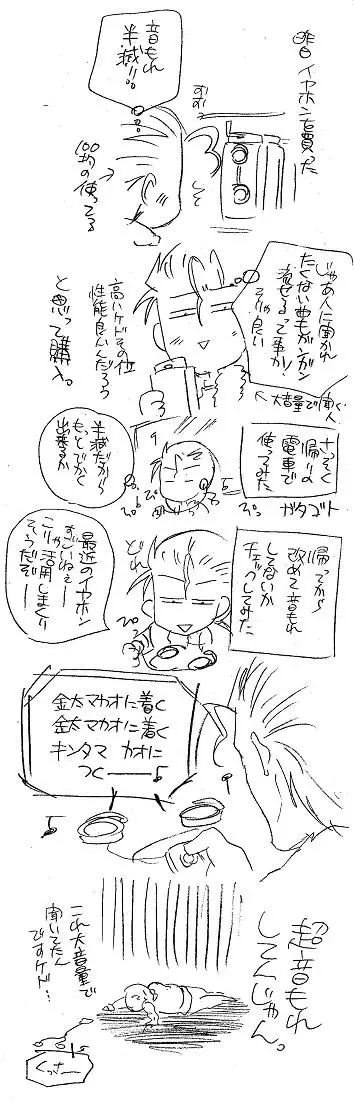 昨日イヤホンを買った
音もれ
半減!!
100均の使ってる
じゃあ人に聞かれ
たくない曲もガンガン
流せるって事か!
そりゃ良い
大音量で聞く人
高いケドその位
性能良いんだろう
と思って購入。
さっそく
帰りの
電車で
使ってみた
ガタゴト
半減だから
もっとでかく
出来るか
帰ってから
改めて音もれ
してないか
チェックしてみた
どれ
最近のイヤホン
すごいねぇー
こりゃ活用しまくり
そうだぞー
金太マカオに着く
金太マカオに着く
キンタマ カオに
つくー
超音もれ
してんじゃん。
これ大音量で
聞いてたん
ですケド…
くっさー